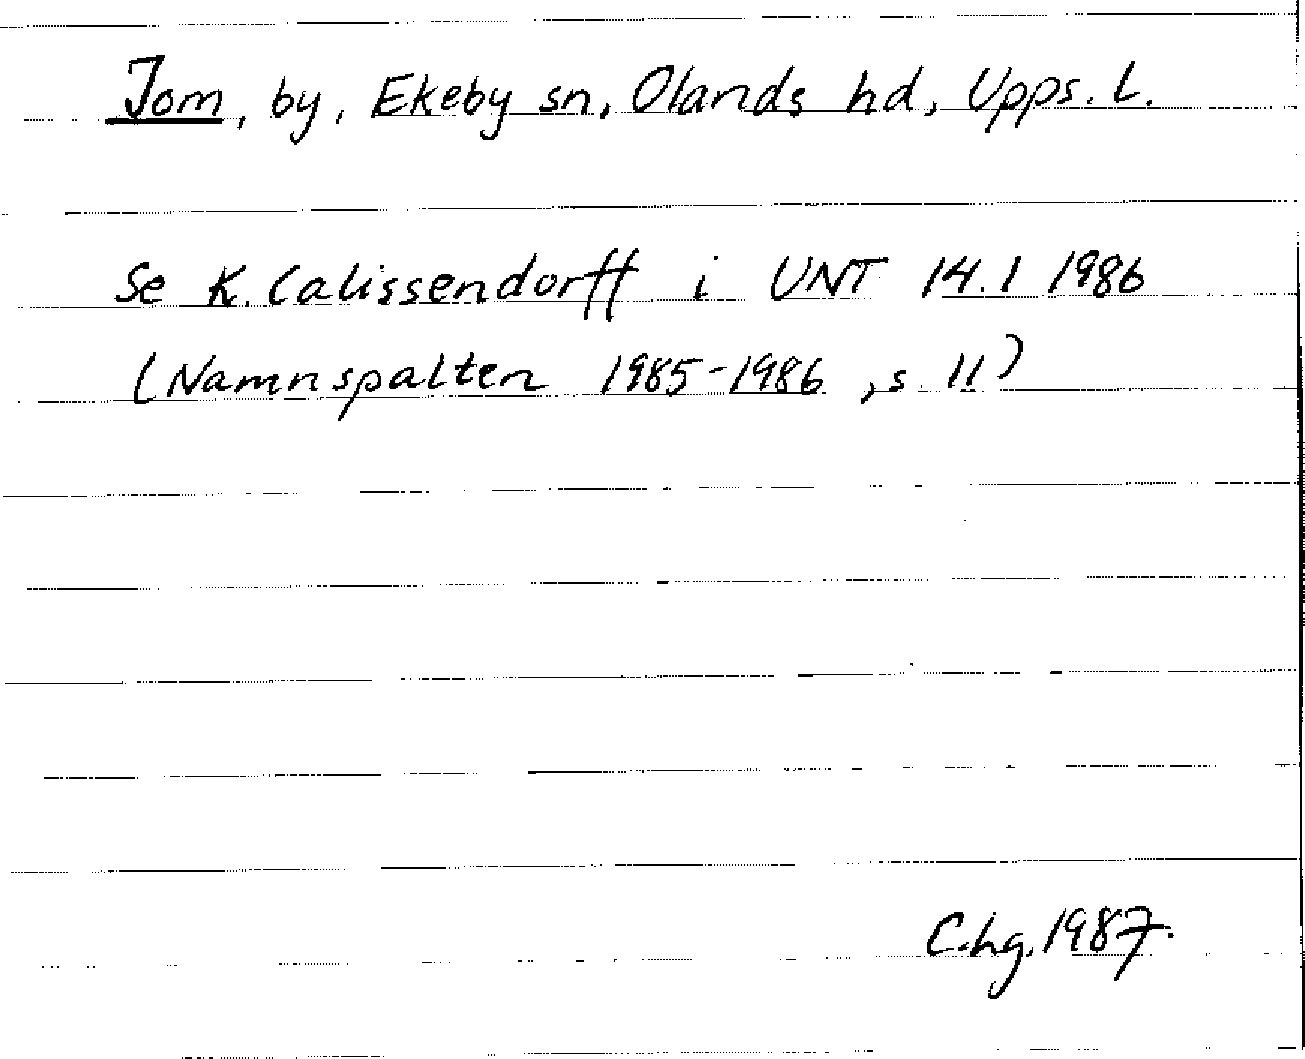 Jom, by, Ekeby sn, Olands hd, Upps. l.
Se K. Calissendorff i UNT 14.1 1986
(Namnspalten 1985-1986, s 11)
C.hg. 1987.